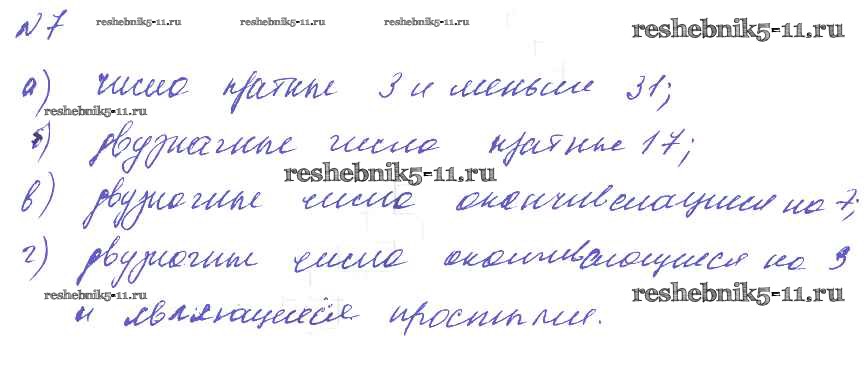 № 7 reshebnik5-11.ru reshebnik5-11.ru reshebnik5-11.ru reshebnik5-11.ru
а) число кратные 3 и меньше 31;
reshebnik5-11.ru
б) двузначные число кратные 17;
reshebnik5-11.ru
в) двузначные число оканчивающиеся на 7;
г) двузначные число оканчивающиеся на 3
reshebnik5-11.ru reshebnik5-11.ru
и являющиеся простыми.